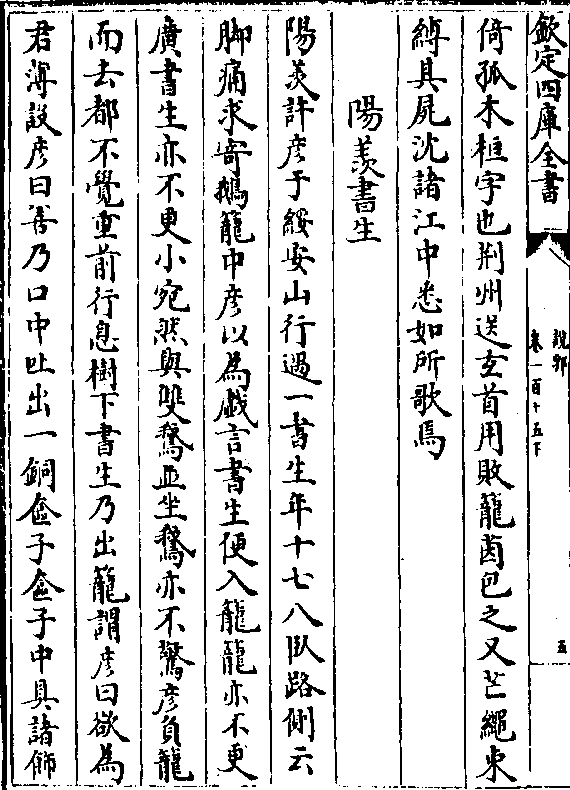 欽定四庫全書
說郛
卷一百十五下
五
倚孤木桓字也荆州送玄首用敗籠茵包之又芒繩束
縛其屍沈諸江中悉如所歌焉
陽羨書生
陽羨許彦于綏安山行過一書生年十七八臥路側云
脚痛求寄鵝籠中彦以為戯言書生便入籠籠亦不更
廣書生亦不更小宛然與雙鵞並坐鵞亦不驚彦負籠
而去都不覺重前行息樹下書生乃出籠謂彦曰欲為
君薄設彦曰善乃口中吐出一銅奩子奩子中具諸飾